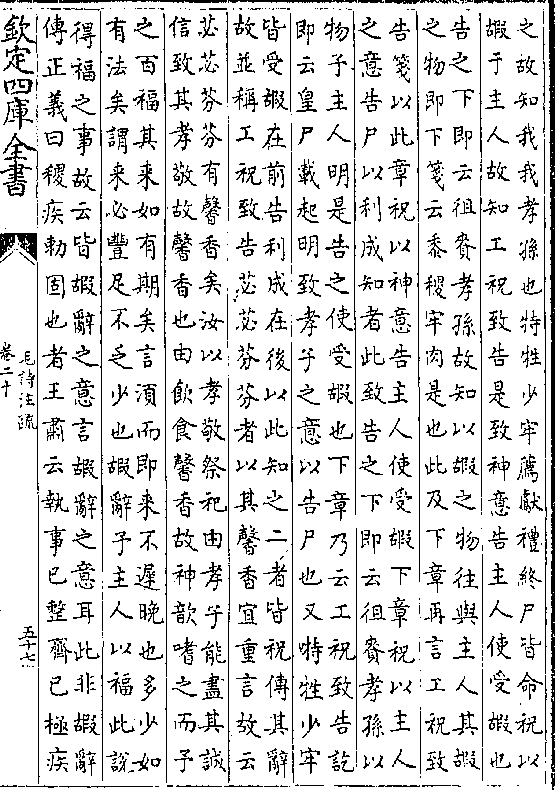 之故知我我孝孫也特牲少牢薦獻禮終尸皆命祝以
嘏于主人故知工祝致告是致神意告主人使受嘏也
告之下即云徂賚孝孫故知以嘏之物往與主人其嘏
之物即下箋云黍稷牢肉是也此及下章再言工祝致
告箋以此章祝以神意告主人使受嘏下章祝以主人
之意告尸以利成知者此致告之下即云徂賚孝孫以
物予主人明是告之使受嘏也下章乃云工祝致告訖
即云皇尸載起明致孝子之意以告尸也又特牲少牢
皆受嘏在前告利成在後以此知之二者皆祝傳其辭
故並稱工祝致告苾苾芬芬者以其馨香宜重言故云
苾苾芬芬有馨香矣汝以孝敬祭祀由孝子能盡其誠
信致其孝敬故馨香也由飲食馨香故神歆嗜之而予
之百福其来如有期矣言湏而即来不遲晚也多少如
有法矣謂来必豐足不乏少也嘏辭予主人以福此説
得福之事故云皆嘏辭之意言嘏辭之意耳此非嘏辭
傳正義曰稷疾勅固也者王肅云執事已整齊已極疾
欽定四庫全書
毛詩注疏
卷二十
五十七